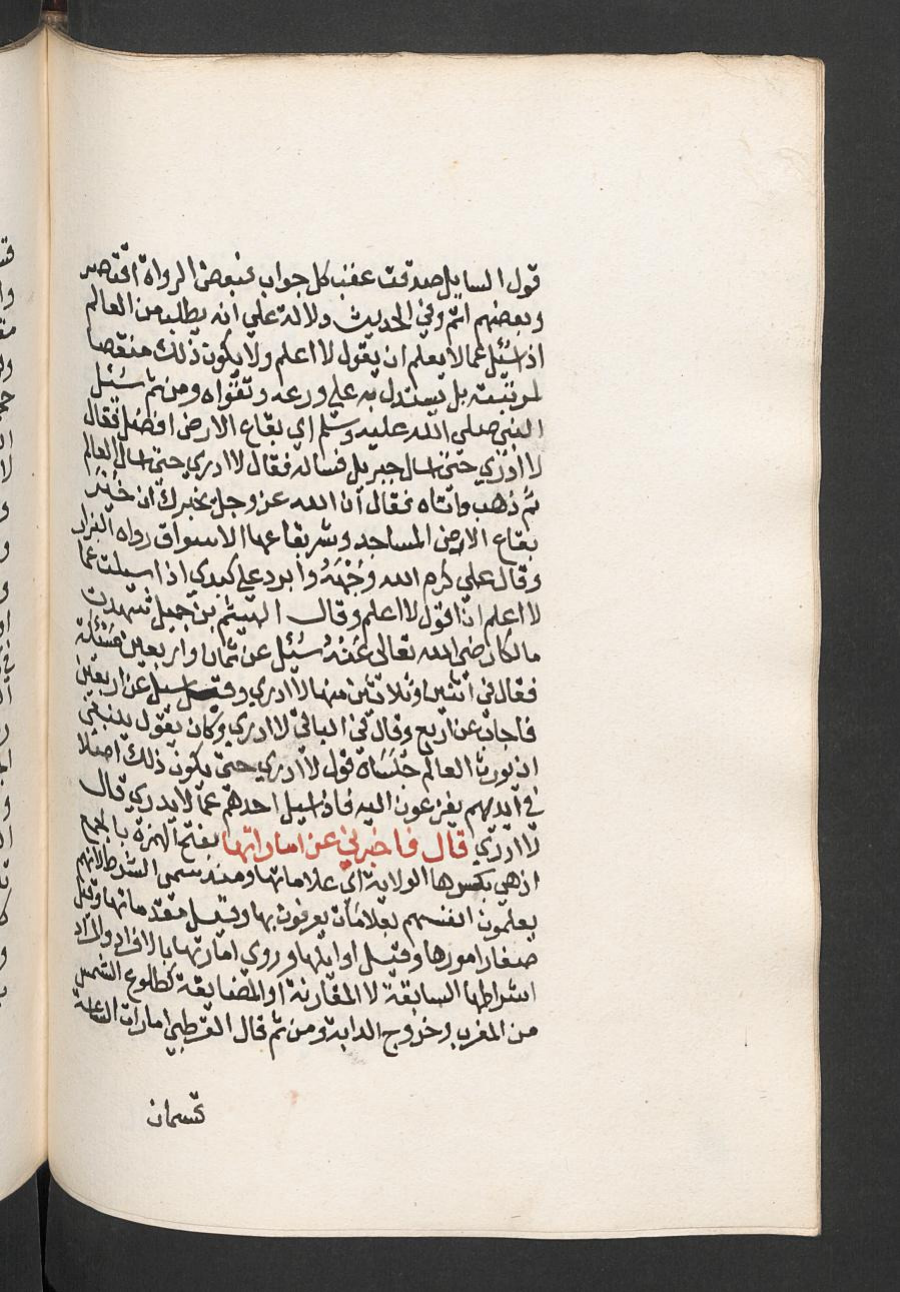 قول السايل صدقت عقب كل جواب فبعض الرواة اقتصر
وبعضهم اتم وفي الحديث دلالة علي انه يطلب من العالم
اذا سئل عما لا يعلم ان يقول لا اعلم ولا يكون ذلك منقصا
لمرتبته بل يستدل به علي ورعه وتقواه ومن ثم سئل
النبي صلي الله عليه وسلم اي بقاع الارض افضل فقال
لا ادري حتي اسال جبريل فساله فقال لا ادري حتي اسال العالم
ثم ذهب واتاه فقال ان الله عز وجل يخبرك ان خير
بقاع الارض المساجد وشر بقاعها الاسواق رواه البزار
وقال علي كرم الله وجهه وابرد علي كبدي اذا سيلت عما
لا اعلم ان اقول لا اعلم وقال الهيثم بن جميل شهدت
مالكا رضي الله تعالى عنه سئل عن ثمان واربعين مسئلة
فقال في اثنين وثلاثين منها لا ادري وقيل سيل عن اربعين
فاجاب عن اربع وقال في الباقي لا ادري وكان يقول ينبغي
ان يورث العالم جلساه قول لا ادري حتي يكون ذلك اصلا
في ايديهم يفزعون اليه فاذا سيل احدهم عما لا يدري قال
لا ادري قال فاخبرني عن اماراتها بفتح الهمزة بالجمع
اذ هي بكسرها الولاية اي علاماتها ومنه سمى الشرط لانهم
يعلمون انفسهم بعلامات يعرفون بها وقيل مقدماتها وقيل
صغار امورها وقيل اوايلها وروي امارتها بالافراد والمراد
اشراطها السابقة لا المقارنة او المضايقة كطلوع الشمس
من المغرب وخروج الدابة ومن ثم قال القرطبي امارات الساعة
قسمان